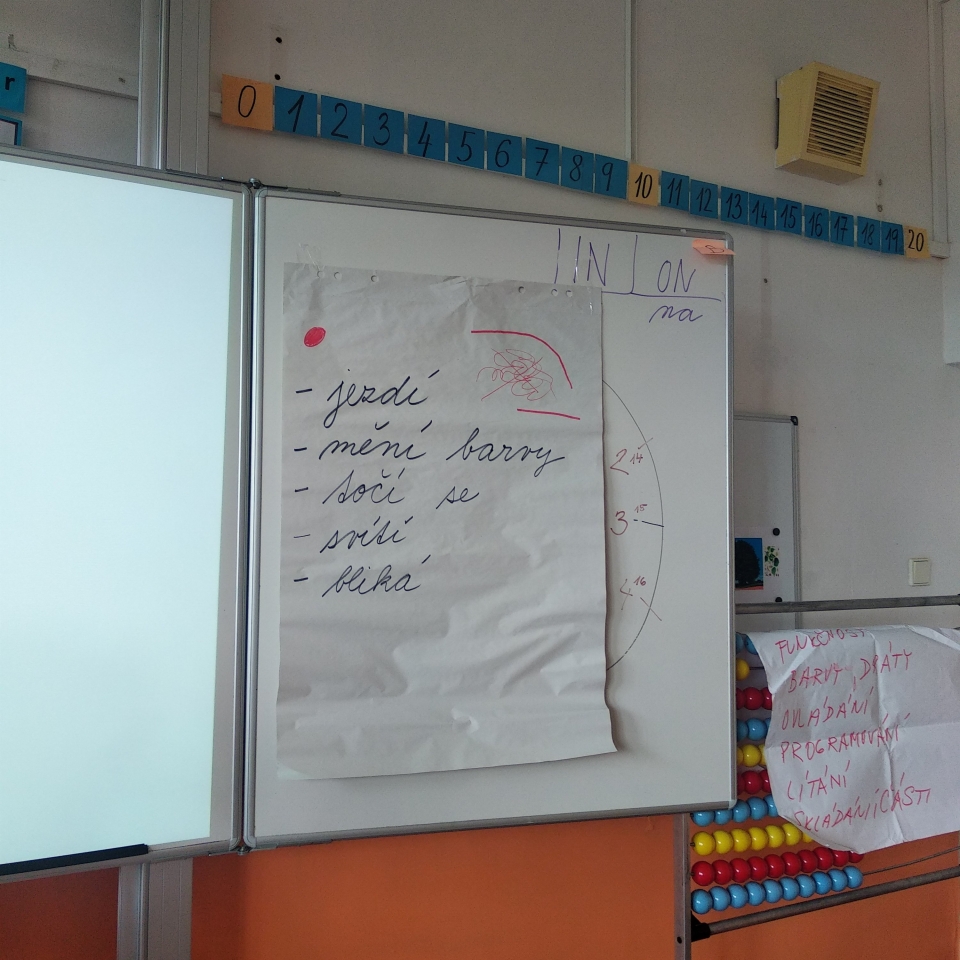 r
0 1 2 3 4 5 6 7 8 9 10 11 12 13 14 15 16 17 18 19 20
IN ON
na
- jezdí
- mění barvy
- točí se
- svítí
- bliká
2 14
3 15
4 16
FUNKČNOST
BARVY, DRÁTY
OVLÁDÁNÍ
PROGRAMOVÁNÍ
LÍTÁNÍ
SKLÁDÁNÍ ČÁSTÍ